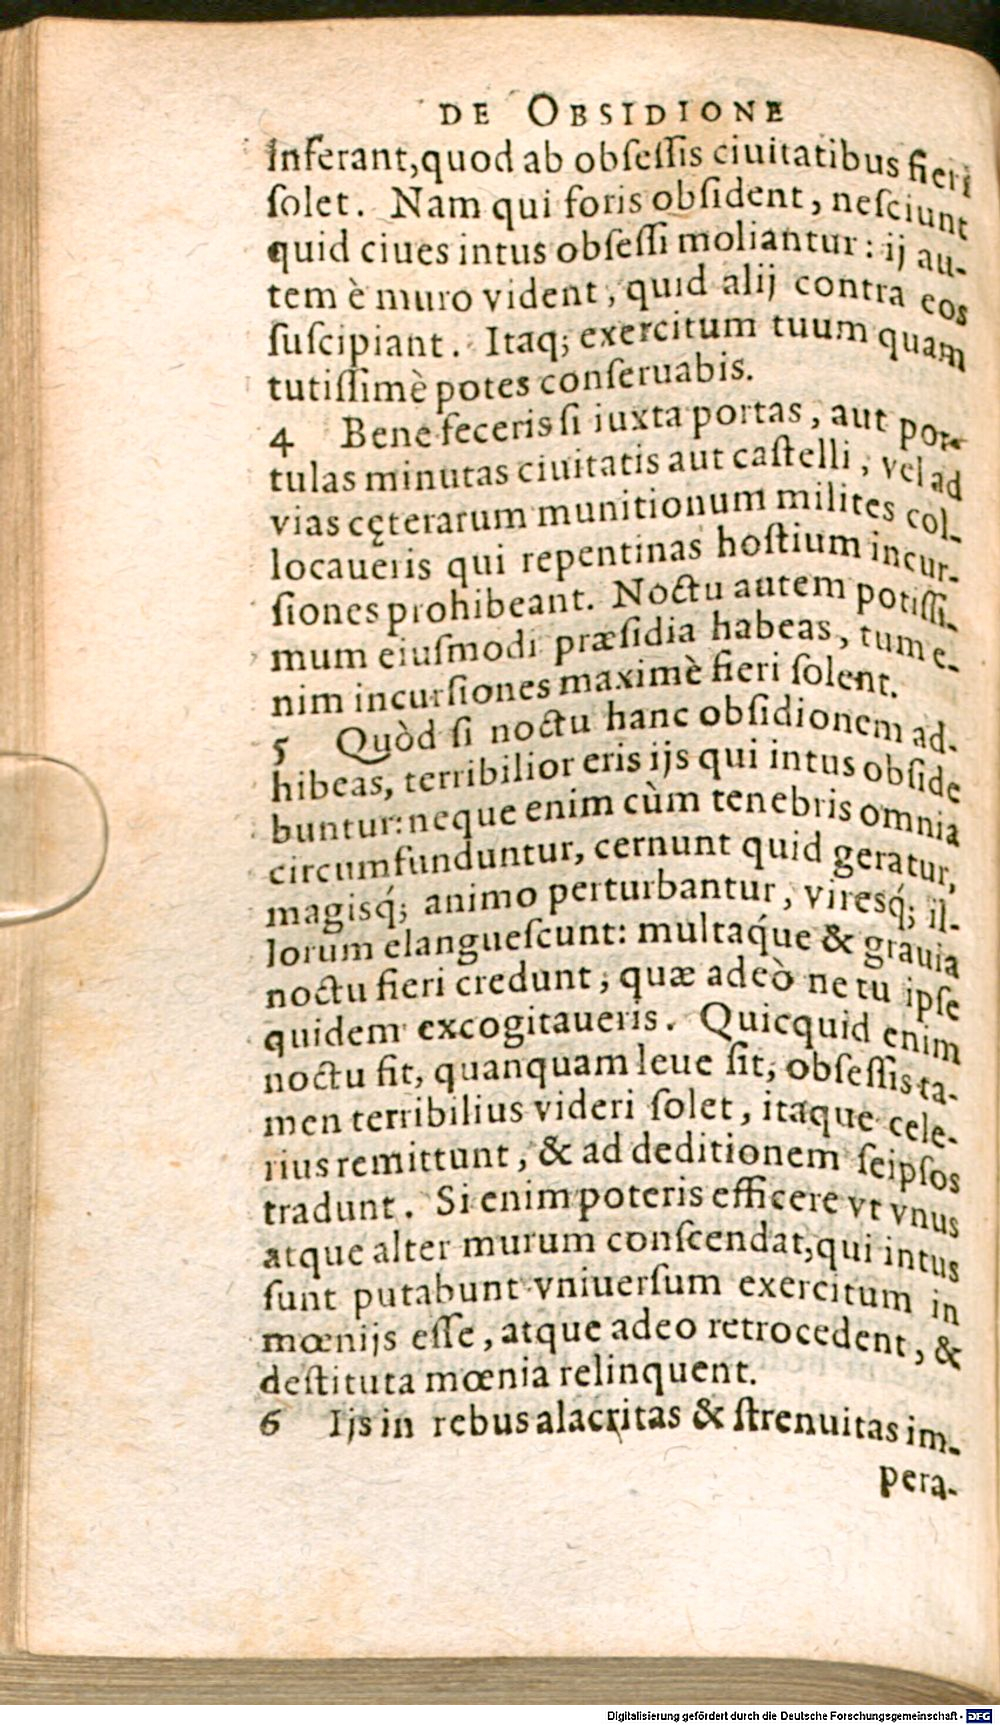 DE OBSIDIONE
inferant, quod ab obſeſſis ciuitatibus fieri
ſolet. Nam qui foris obſident, neſciunt
quid ciues intus obſeſſi moliantur: ij au-
tem è muro vident, quid alij contra eos
ſuſcipiant. Itaq; exercitum tuum quam
tutiſſimè potes conſeruabis.
4 Bene feceris ſi iuxta portas, aut por-
tulas minutas ciuitatis aut caſtelli, vel ad
vias cęterarum munitionum milites col-
locaueris qui repentinas hoſtium incur-
ſiones prohibeant. Noctu autem potiſſi-
mum eiuſmodi præſidia habeas, tum e-
nim incurſiones maximè fieri ſolent.
5 Quòd ſi noctu hanc obſidionem ad-
hibeas, terribilior eris ijs qui intus obſide
buntur: neque enim cùm tenebris omnia
circumfunduntur, cernunt quid geratur,
magisq́; animo perturbantur, viresq́; il-
lorum elangueſcunt: multaq́ue & grauia
noctu fieri credunt, quæ adeò ne tu ipſe
quidem excogitaueris. Quicquid enim
noctu fit, quanquam leue ſit, obſeſſis ta-
men terribilius videri ſolet, itaque cele-
rius remittunt, & ad deditionem ſeipſos
tradunt. Si enim poteris efficere vt vnus
atque alter murum conſcendat, qui intus
ſunt putabunt vniuerſum exercitum in
mœnijs eſſe, atque adeo retrocedent, &
deſtituta mœnia relinquent.
6 Ijs in rebus alacritas & ſtrenuitas im-
pera-
Digitalisierung gefördert durch die Deutsche Forschungsgemeinschaft - DFG